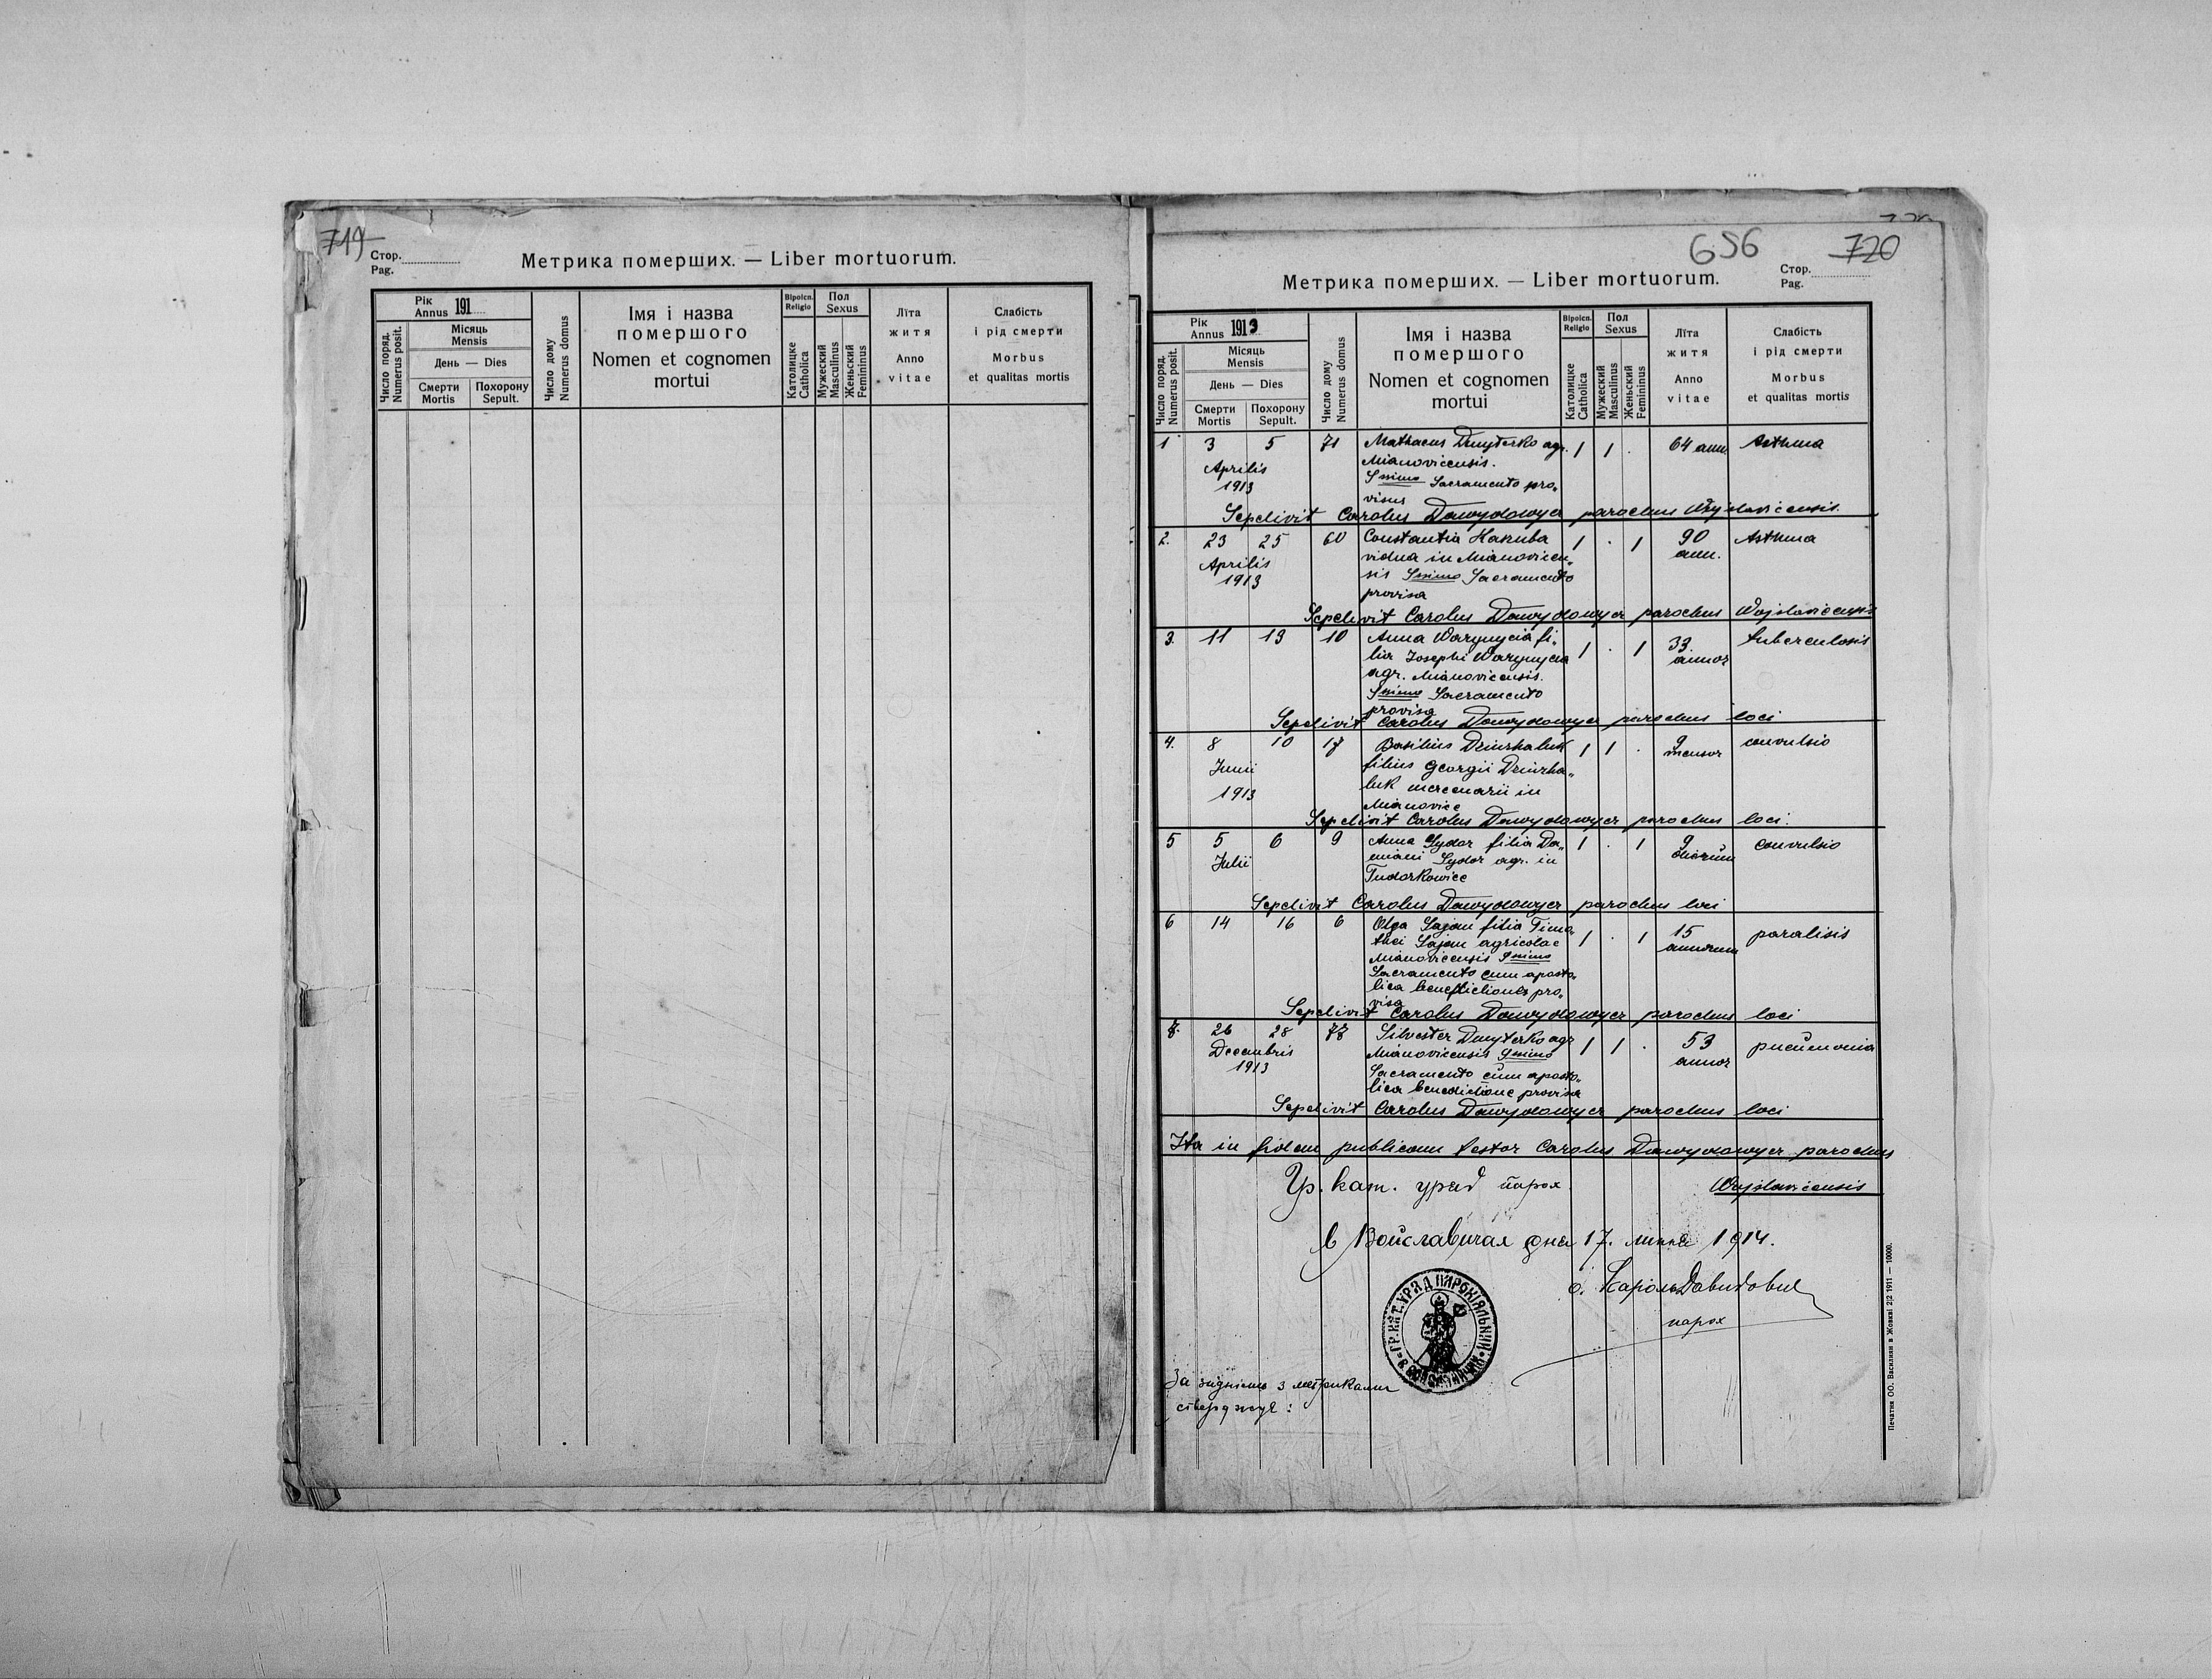 719
Стор.
Pag.
Метрика померших. — Liber mortuorum.
Рік
Annus 191
Місяць
Mensis
День — Dies
Число поряд.
Numerus posit.
Смерти
Mortis
Похорону
Sepult.
Число дому
Numerus domus
Імя і назва
помершого
Nomen et cognomen
mortui
Віроісп.
Religio
Католицке
Catholica
Пол
Sexus
Мужеский
Masculinus
Женьский
Femininus
Літа
житя
Anno
vitae
Слабість
і рід смерти
Morbus
et qualitas mortis
656
720
Стор.
Pag.
Метрика померших. — Liber mortuorum.
Рік
Annus 1913
Місяць
Mensis
День — Dies
Число поряд.
Numerus posit.
Смерти
Mortis
Похорону
Sepult.
Число дому
Numerus domus
Імя і назва
помершого
Nomen et cognomen
mortui
Віроісп.
Religio
Католицке
Catholica
Пол
Sexus
Мужеский
Masculinus
Женьский
Femininus
Літа
житя
Anno
vitae
Слабість
і рід смерти
Morbus
et qualitas mortis
1 3 5 71 Mathaeus Dmyterko agr. 1 1 . 64 ann. Asthma
Aprilis Mianovicensis.
1913 Ssimo Sacramento pro„
visus
Sepelivit Carolus Dawydowycz parochus Wojslavicensis.
2. 23 25 60 Constantia Hakuba 1 . 1 90 Asthma
Aprilis vidua in Mianovicen„ ann.
1913 sis Ssimo Sacramento
provisa
Sepelivit Carolus Dawydowycz parochus Wojslavicensis
3. 11 13 10 Anna Warynycia fi„ 1 . 1 33 tuberculosis
lia Josephi Warynycia annor
agr. Mianovicensis.
Ssimo Sacramento
provisa
Sepelivit Carolus Dawydowycz parochus loci
4. 8 10 17 Basilius Dziurhaluk 1 1 . 9 convulsio
Junii filius Georgii Dziurha„ mensor
1913 luk mercenarii in
Mianovice
Sepelivit Carolus Dawydowycz parochus loci.
5 5 6 9 Anna Sydor filia Da„ 1 . 1 9 convulsio
Julii miani Sydor agr. in dierum
Tudorkowice
Sepelivit Carolus Dawydowycz parochus loci
6 14 16 6 Olga Sajan filia Timo„ 1 . 1 15 paralisis
thei Sajan agricolae annorum
Mianovicensis Ssimo
Sacramento cum aposto„
lica benedictione pro„
visa
Sepelivit Carolus Dawydowycz parochus loci
7. 26 28 77 Silvester Dmyterko agr 1 1 . 53 pneumonia
Decembris Mianovicensis Ssimo annor
1913 Sacramento cum aposto„
lica benedictione provisa
Sepelivit Carolus Dawydowycz parochus loci
Ita in fidem publicam testor Carolus Dawydowycz parochus
Wojslavicensis
Гр. кат. уряд парох.
в Войславичах дня 17. липня 1914.
о. Кароль Давидович
парох
ГР. КАТ. УРЯД ПАРОХІЯЛЬНИЙ
За згідність з метриками
стверджує:
Печатня ОО. Василиян в Жовкві 2|2 1911 — 10000.